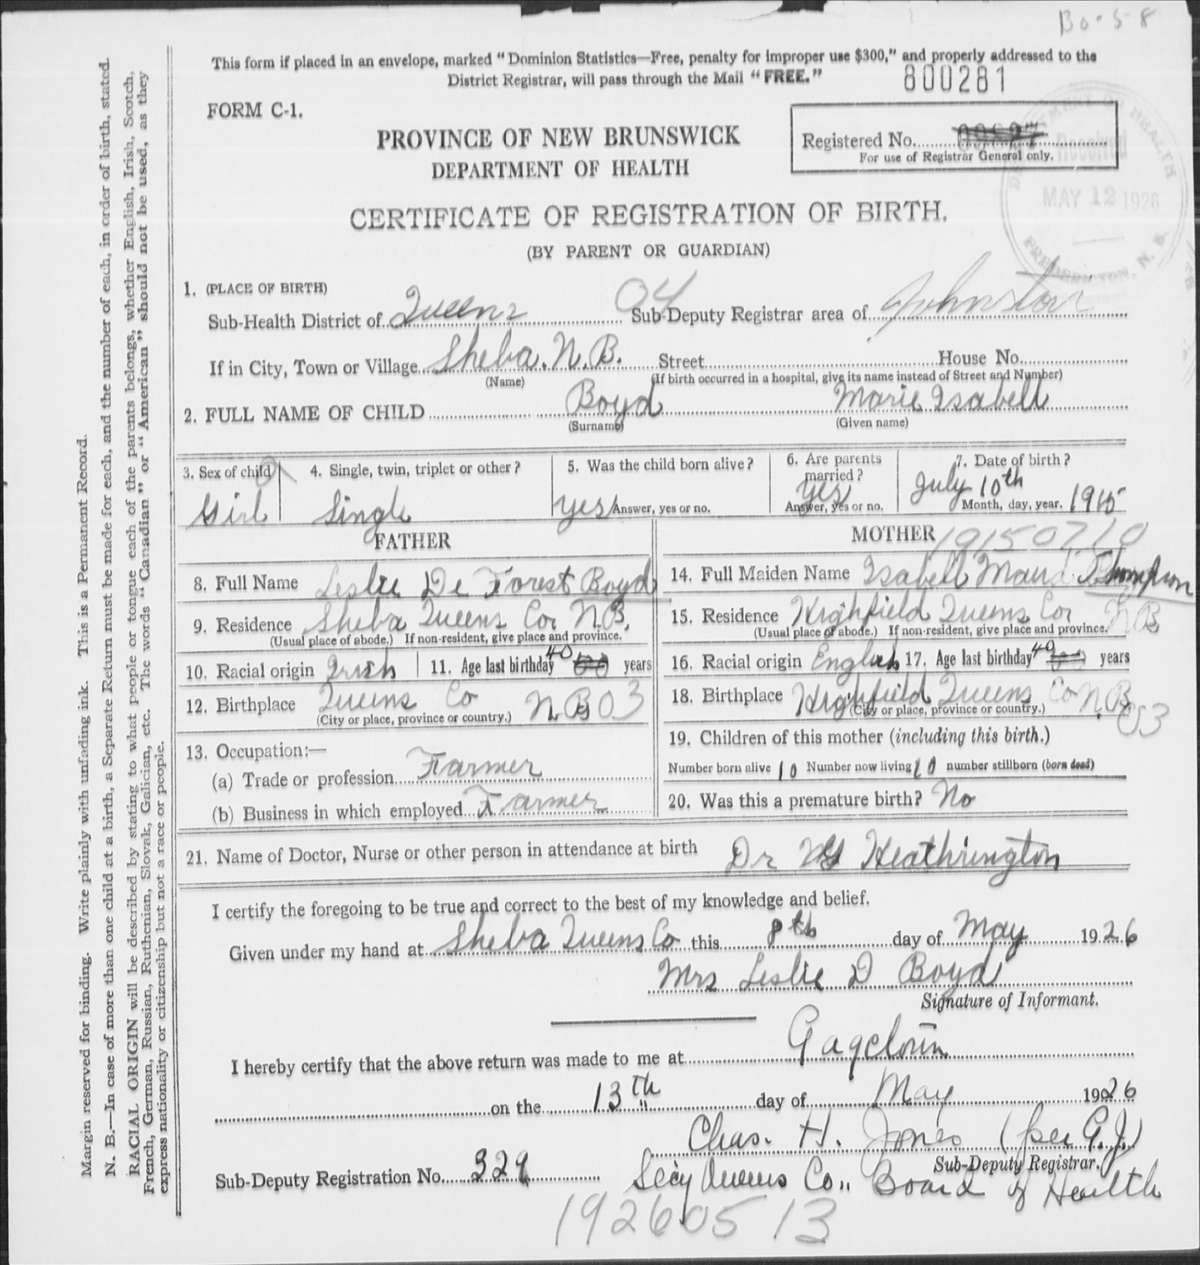 Bo-58
This form if placed in an envelope, marked "Dominion Statistics—Free, penalty for improper use $300," and properly addressed to the
District Registrar, will pass through the Mail "FREE."
800281
FORM C-1.
PROVINCE OF NEW BRUNSWICK
DEPARTMENT OF HEALTH
Registered No.
For use of Registrar General only.
DEPARTMENT OF HEALTH
Received
MAY 12 1926
FREDERICTON, N. B.
CERTIFICATE OF REGISTRATION OF BIRTH.
(BY PARENT OR GUARDIAN)
1. (PLACE OF BIRTH)
Sub-Health District of Queens 04 Sub-Deputy Registrar area of Johnston
If in City, Town or Village Sheba. N. B. Street House No.
(Name) (If birth occurred in a hospital, give its name instead of Street and Number)
2. FULL NAME OF CHILD Boyd Marie Isabell
(Surname) (Given name)
3. Sex of child 4. Single, twin, triplet or other? 5. Was the child born alive? 6. Are parents married? 7. Date of birth?
Girl Single yes Answer, yes or no. yes Answer, yes or no. July 10th 1915 Month, day, year.
FATHER MOTHER 19150710
8. Full Name Leslie De Forest Boyd 14. Full Maiden Name Isabell Maud Thompson
9. Residence Sheba Queens Co N.B. 15. Residence Highfield Queens Co N B
(Usual place of abode.) If non-resident, give place and province. (Usual place of abode.) If non-resident, give place and province.
10. Racial origin Irish 11. Age last birthday 40 years 16. Racial origin English 17. Age last birthday 40 years
12. Birthplace Queens Co N.B 03 18. Birthplace Highfield Queens Co N.B 03
(City or place, province or country.) (City or place, province or country.)
13. Occupation:— 19. Children of this mother (including this birth.)
(a) Trade or profession Farmer Number born alive 10 Number now living 10 number stillborn (born dead)
(b) Business in which employed Farmer 20. Was this a premature birth? No
21. Name of Doctor, Nurse or other person in attendance at birth Dr Heathrington
I certify the foregoing to be true and correct to the best of my knowledge and belief.
Given under my hand at Sheba Queens Co this 8th day of May 1926
Mrs Leslie D Boyd
Signature of Informant.
I hereby certify that the above return was made to me at Gagetown
on the 13th day of May 1926
Chas. H. Jones (per G.J.)
Sub-Deputy Registrar.
Sub-Deputy Registration No. 329 Secy Queens Co., Board of Health
19260513
Margin reserved for binding. Write plainly with unfading ink. This is a Permanent Record.
N. B.—In case of more than one child at a birth, a Separate Return must be made for each, and the number of each, in order of birth, stated.
RACIAL ORIGIN will be described by stating to what people or tongue each of the parents belongs, whether English, Irish, Scotch,
French, German, Russian, Ruthenian, Slovak, Galician, etc. The words "Canadian" or "American" should not be used, as they
express nationality or citizenship but not a race or people.